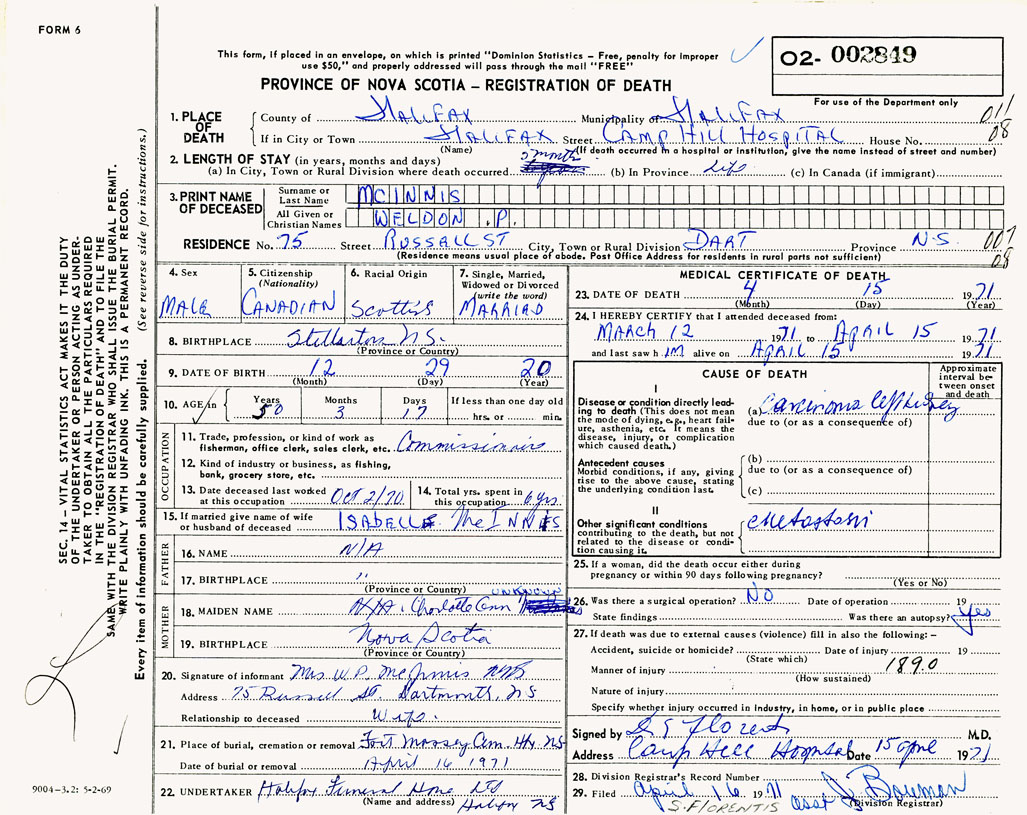 FORM 6
This form, if placed in an envelope, on which is printed "Dominion Statistics – Free, penalty for improper
use $50," and properly addressed will pass through the mail "FREE"
O2- 002849
PROVINCE OF NOVA SCOTIA – REGISTRATION OF DEATH
For use of the Department only
1. PLACE OF DEATH County of HALIFAX Municipality of HALIFAX 011
If in City or Town HALIFAX Street CAMP HILL HOSPITAL House No. 08
(Name) (If death occurred in a hospital or institution, give the name instead of street and number)
2. LENGTH OF STAY (in years, months and days)
(a) In City, Town or Rural Division where death occurred (b) In Province Life (c) In Canada (if immigrant)
3. PRINT NAME OF DECEASED
Surname or Last Name MCINNIS
All Given or Christian Names WELDON .P.
RESIDENCE No. 75 Street RUSSALL ST City, Town or Rural Division DART Province N.S. 007
(Residence means usual place of abode. Post Office Address for residents in rural parts not sufficient) 08
4. Sex MALE
5. Citizenship (Nationality) CANADIAN
6. Racial Origin Scottis
7. Single, Married, Widowed or Divorced (write the word) MARRIAD
8. BIRTHPLACE Stellarton N.S.
(Province or Country)
9. DATE OF BIRTH 12 29 20
(Month) (Day) (Year)
10. AGE in Years 50 Months 3 Days 17 If less than one day old
hrs. or min.
OCCUPATION
11. Trade, profession, or kind of work as
fisherman, office clerk, sales clerk, etc. Commissionaire
12. Kind of industry or business, as fishing,
bank, grocery store, etc.
13. Date deceased last worked at this occupation OCT 2/70 14. Total yrs. spent in this occupation 6 yrs.
15. If married give name of wife
or husband of deceased ISABELLE McINNIS
FATHER
16. NAME N/A
17. BIRTHPLACE "
(Province or Country) UNKNOWN
MOTHER
18. MAIDEN NAME N/A. Charlotte Ann
19. BIRTHPLACE Nova Scotia
(Province or Country)
20. Signature of informant Mrs W.P. McInnis
Address 75 Russell St. Dartmouth, NS
Relationship to deceased Wife.
21. Place of burial, cremation or removal Fort Massey Cem. Hfx NS
Date of burial or removal April 16 1971
22. UNDERTAKER Halifax Funeral Home Ltd
(Name and address) Halifax NS
MEDICAL CERTIFICATE OF DEATH
23. DATE OF DEATH 4 15 1971
(Month) (Day) (Year)
24. I HEREBY CERTIFY that I attended deceased from:
MARCH 12 1971 to APRIL 15 1971
and last saw him alive on APRIL 15 1971
CAUSE OF DEATH
Approximate interval between onset and death
I
Disease or condition directly leading
to death (This does not mean
the mode of dying, e.g., heart failure,
asthenia, etc. It means the
disease, injury, or complication
which caused death.)
(a) Carcinoma left kidney
due to (or as a consequence of)
Antecedent causes
Morbid conditions, if any, giving
rise to the above cause, stating
the underlying condition last.
(b)
due to (or as a consequence of)
(c)
II
Other significant conditions
contributing to the death, but not
related to the disease or condition
causing it.
Metastasis
25. If a woman, did the death occur either during
pregnancy or within 90 days following pregnancy?
(Yes or No)
26. Was there a surgical operation? NO Date of operation 19
State findings Was there an autopsy? Yes
27. If death was due to external causes (violence) fill in also the following: –
Accident, suicide or homicide? Date of injury 19
(State which)
Manner of injury 189.0
(How sustained)
Nature of injury
Specify whether injury occurred in industry, in home, or in public place
Signed by S Florentis M.D.
Address Camp Hill Hospital Date 15 April 1971
28. Division Registrar's Record Number
29. Filed April 16 1971 asst J. Bowman
S. FLORENTIS (Division Registrar)
SEC. 14 – VITAL STATISTICS ACT MAKES IT THE DUTY
OF THE UNDERTAKER OR PERSON ACTING AS UNDERTAKER
TO OBTAIN ALL THE PARTICULARS REQUIRED
IN THE "REGISTRATION OF DEATH" AND TO FILE THE
SAME WITH THE DIVISION REGISTRAR WHO SHALL ISSUE THE BURIAL PERMIT.
WRITE PLAINLY WITH UNFADING INK. THIS IS A PERMANENT RECORD.
Every item of information should be carefully supplied. (See reverse side for instructions.)
9004-3.2: 5-2-69